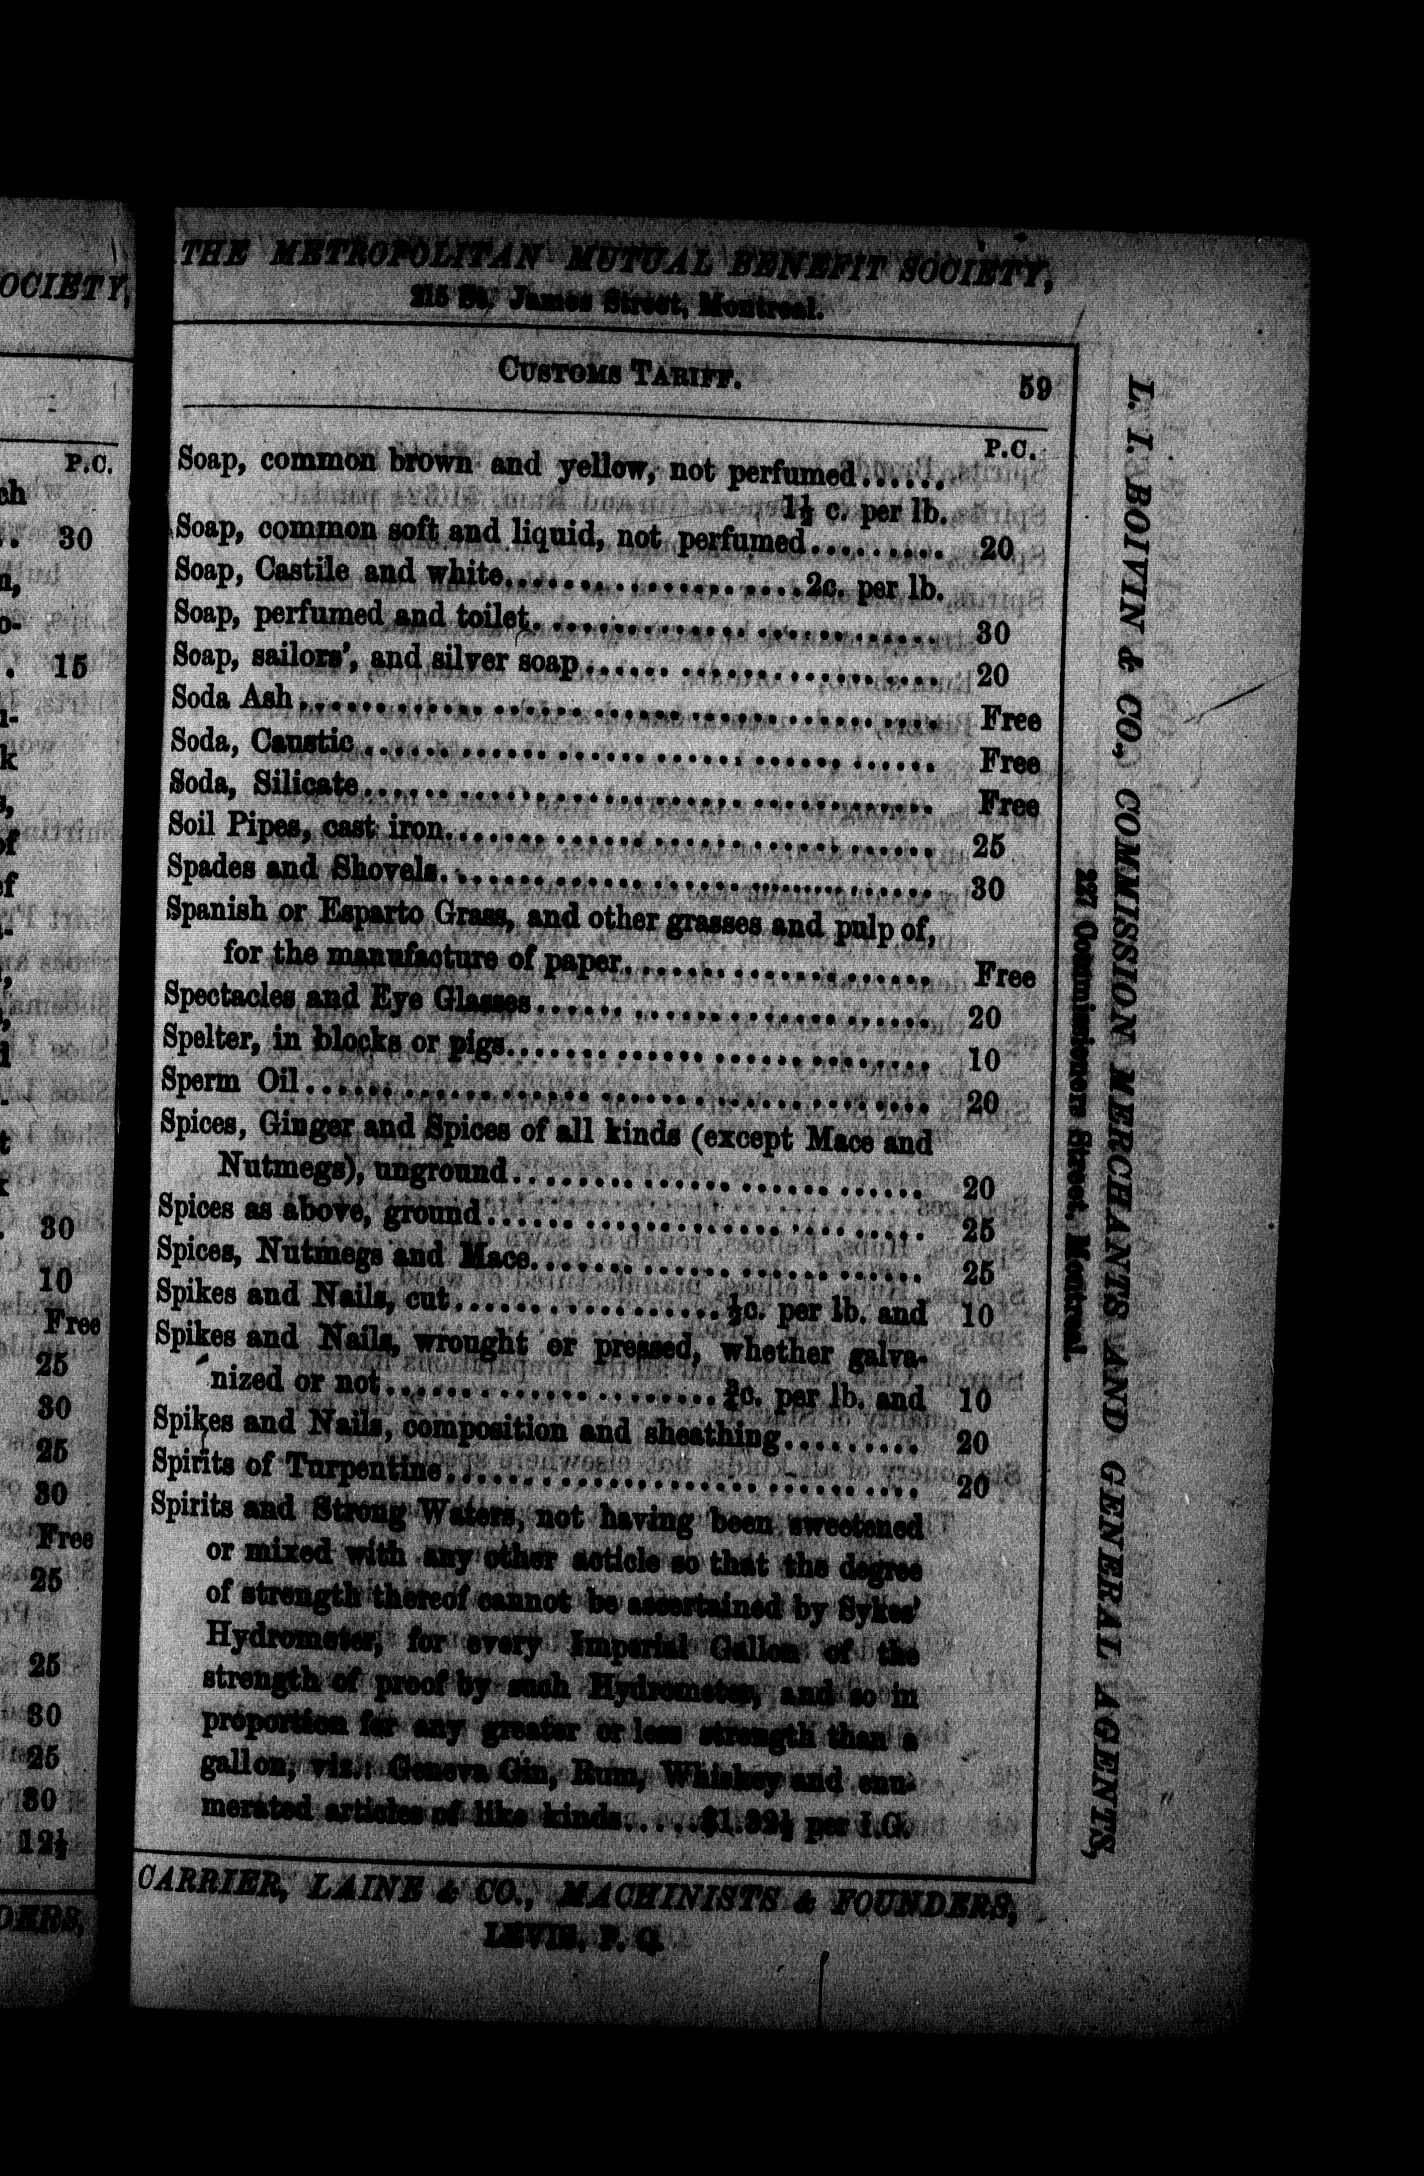 OCIETY,
P.C.
ch
. . 30
n,
o-
. 15
u-
k
s,
of
of
d
t
. 30
10
Free
25
30
25
30
Free
25
25
30
25
30
12½
DERS,
THE METROPOLITAN MUTUAL BENEFIT SOCIETY,
215 St. James Street, Montreal.
CUSTOMS TARIFF. 59
P.C.
Soap, common brown and yellow, not perfumed......
1½ c. per lb.
Soap, common soft and liquid, not perfumed......... 20
Soap, Castile and white....................2c. per lb.
Soap, perfumed and toilet........................ 30
Soap, sailors', and silver soap..................... 20
Soda Ash........................................ Free
Soda, Caustic................................... Free
Soda, Silicate................................... Free
Soil Pipes, cast iron............................. 25
Spades and Shovels.............................. 30
Spanish or Esparto Grass, and other grasses and pulp of,
for the manufacture of paper................... Free
Spectacles and Eye Glasses........................ 20
Spelter, in blocks or pigs.......................... 10
Sperm Oil....................................... 20
Spices, Ginger and Spices of all kinds (except Mace and
Nutmegs), unground.......................... 20
Spices as above, ground........................... 25
Spices, Nutmegs and Mace........................ 25
Spikes and Nails, cut..................½c. per lb. and 10
Spikes and Nails, wrought or pressed, whether galva-
nized or not......................¾c. per lb. and 10
Spikes and Nails, composition and sheathing......... 20
Spirits of Turpentine.............................. 20
Spirits and Strong Waters, not having been sweetened
or mixed with any other acticle so that the degree
of strength thereof cannot be ascertained by Sykes'
Hydrometer, for every Imperial Gallon of the
strength of proof by such Hydrometer, and so in
proportion for any greater or less strength than a
gallon, viz.: Geneva Gin, Rum, Whiskey and enu-
merated articles of like kinds.....$1.32½ per I.G.
CARRIER, LAINE & CO., MACHINISTS & FOUNDERS,
LEVIS, P. Q.
L. I. BOIVIN & CO., COMMISSION MERCHANTS AND GENERAL AGENTS,
227 Commissioners Street, Montreal